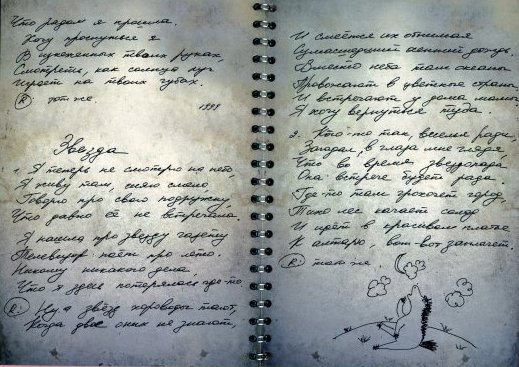 Что рядом я пришла.
Хочу проснуться я
В ухоженных твоих руках,
Смотреть, как солнца луч
Играет на твоих губах.
R: тот же.
1999
Звезда
1. Я теперь не смотрю на небо,
Я живу там, снял
Говорю про свою подружку,
Что давно её не встречала.
Я нашла про звезду газету
Телевизор поёт про лето.
Никому никакого дела,
Что я здесь потерялась где-то.
R: Ну а звёзд хороводы тают,
Когда двое о них не знают,
И смеётся их обнимая
Сумасшедший осенний дождь.
Вместо неба там океаны
Провожают в цветные страны,
И встречают у дома мамы
Я хочу вернуться туда.
2. Кто-то там, веселья ради,
Загадал, в глаза мне глядя
Что во время звездопада
Она встрече будет рада
Где-то там грохочет город,
Тихо лес качает
И идёт в красивом платье
К алтарю, вот-вот заплачет.
R: тот же.